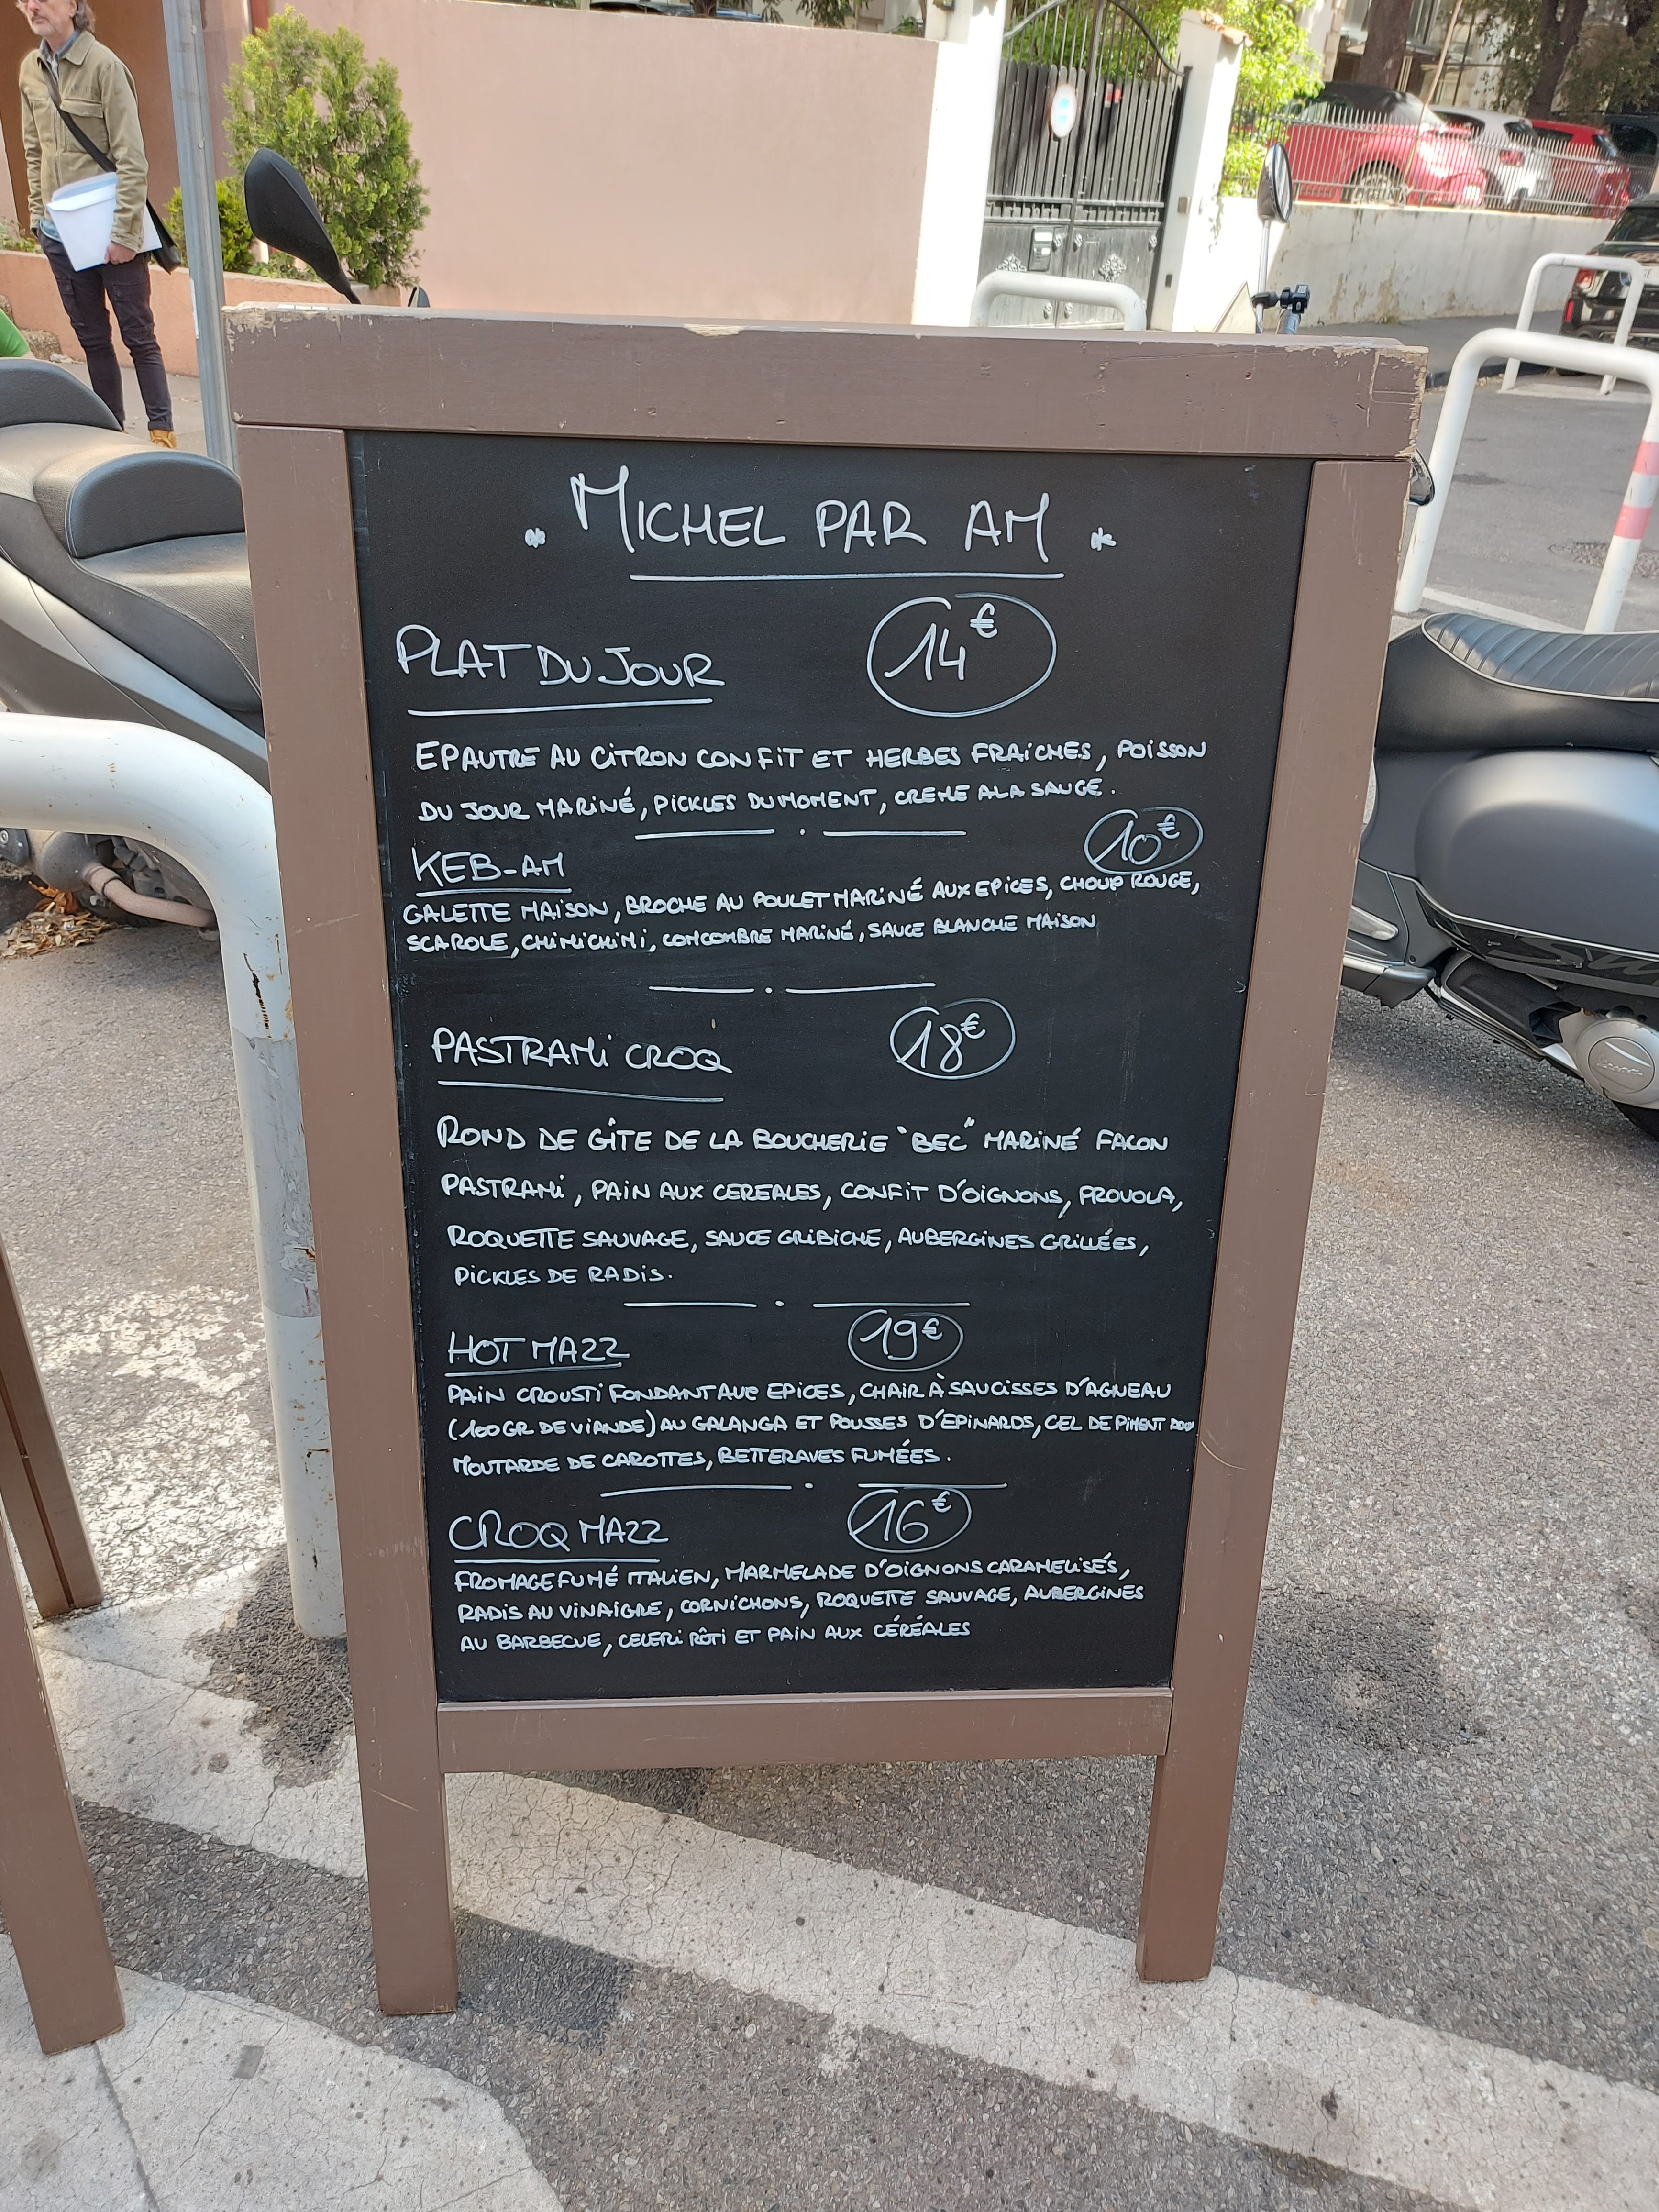 * MICHEL PAR AM *
PLAT DU JOUR 14€
EPAUTRE AU CITRON CONFIT ET HERBES FRAICHES, POISSON
DU JOUR MARINÉ, PICKLES DU MOMENT, CREME A LA SAUGE.
KEB-AM 10€
GALETTE MAISON, BROCHE AU POULET MARINÉ AUX EPICES, CHOUP ROUGE,
SCAROLE, CHIMICHIMI, COMCOMBRE MARINÉ, SAUCE BLANCHE MAISON
PASTRAMI CROQ 18€
ROND DE GÎTE DE LA BOUCHERIE "BEC" MARINÉ FACON
PASTRAMI, PAIN AUX CEREALES, CONFIT D'OIGNONS, PROVOLA,
ROQUETTE SAUVAGE, SAUCE GRIBICHE, AUBERGINES GRILLÉES,
PICKLES DE RADIS.
HOT MAZZ 19€
PAIN CROUSTI FONDANT AUX EPICES, CHAIR À SAUCISSES D'AGNEAU
(100GR DE VIANDE) AU GALANGA ET POUSSES D'EPINARDS, GEL DE PIMENT DOUX
MOUTARDE DE CAROTTES, BETTERAVES FUMÉES.
CROQ MAZZ 16€
FROMAGE FUMÉ ITALIEN, MARMELADE D'OIGNONS CARAMELISÉS,
RADIS AU VINAIGRE, CORNICHONS, ROQUETTE SAUVAGE, AUBERGINES
AU BARBECUE, CELERI RÔTI ET PAIN AUX CÉRÉALES